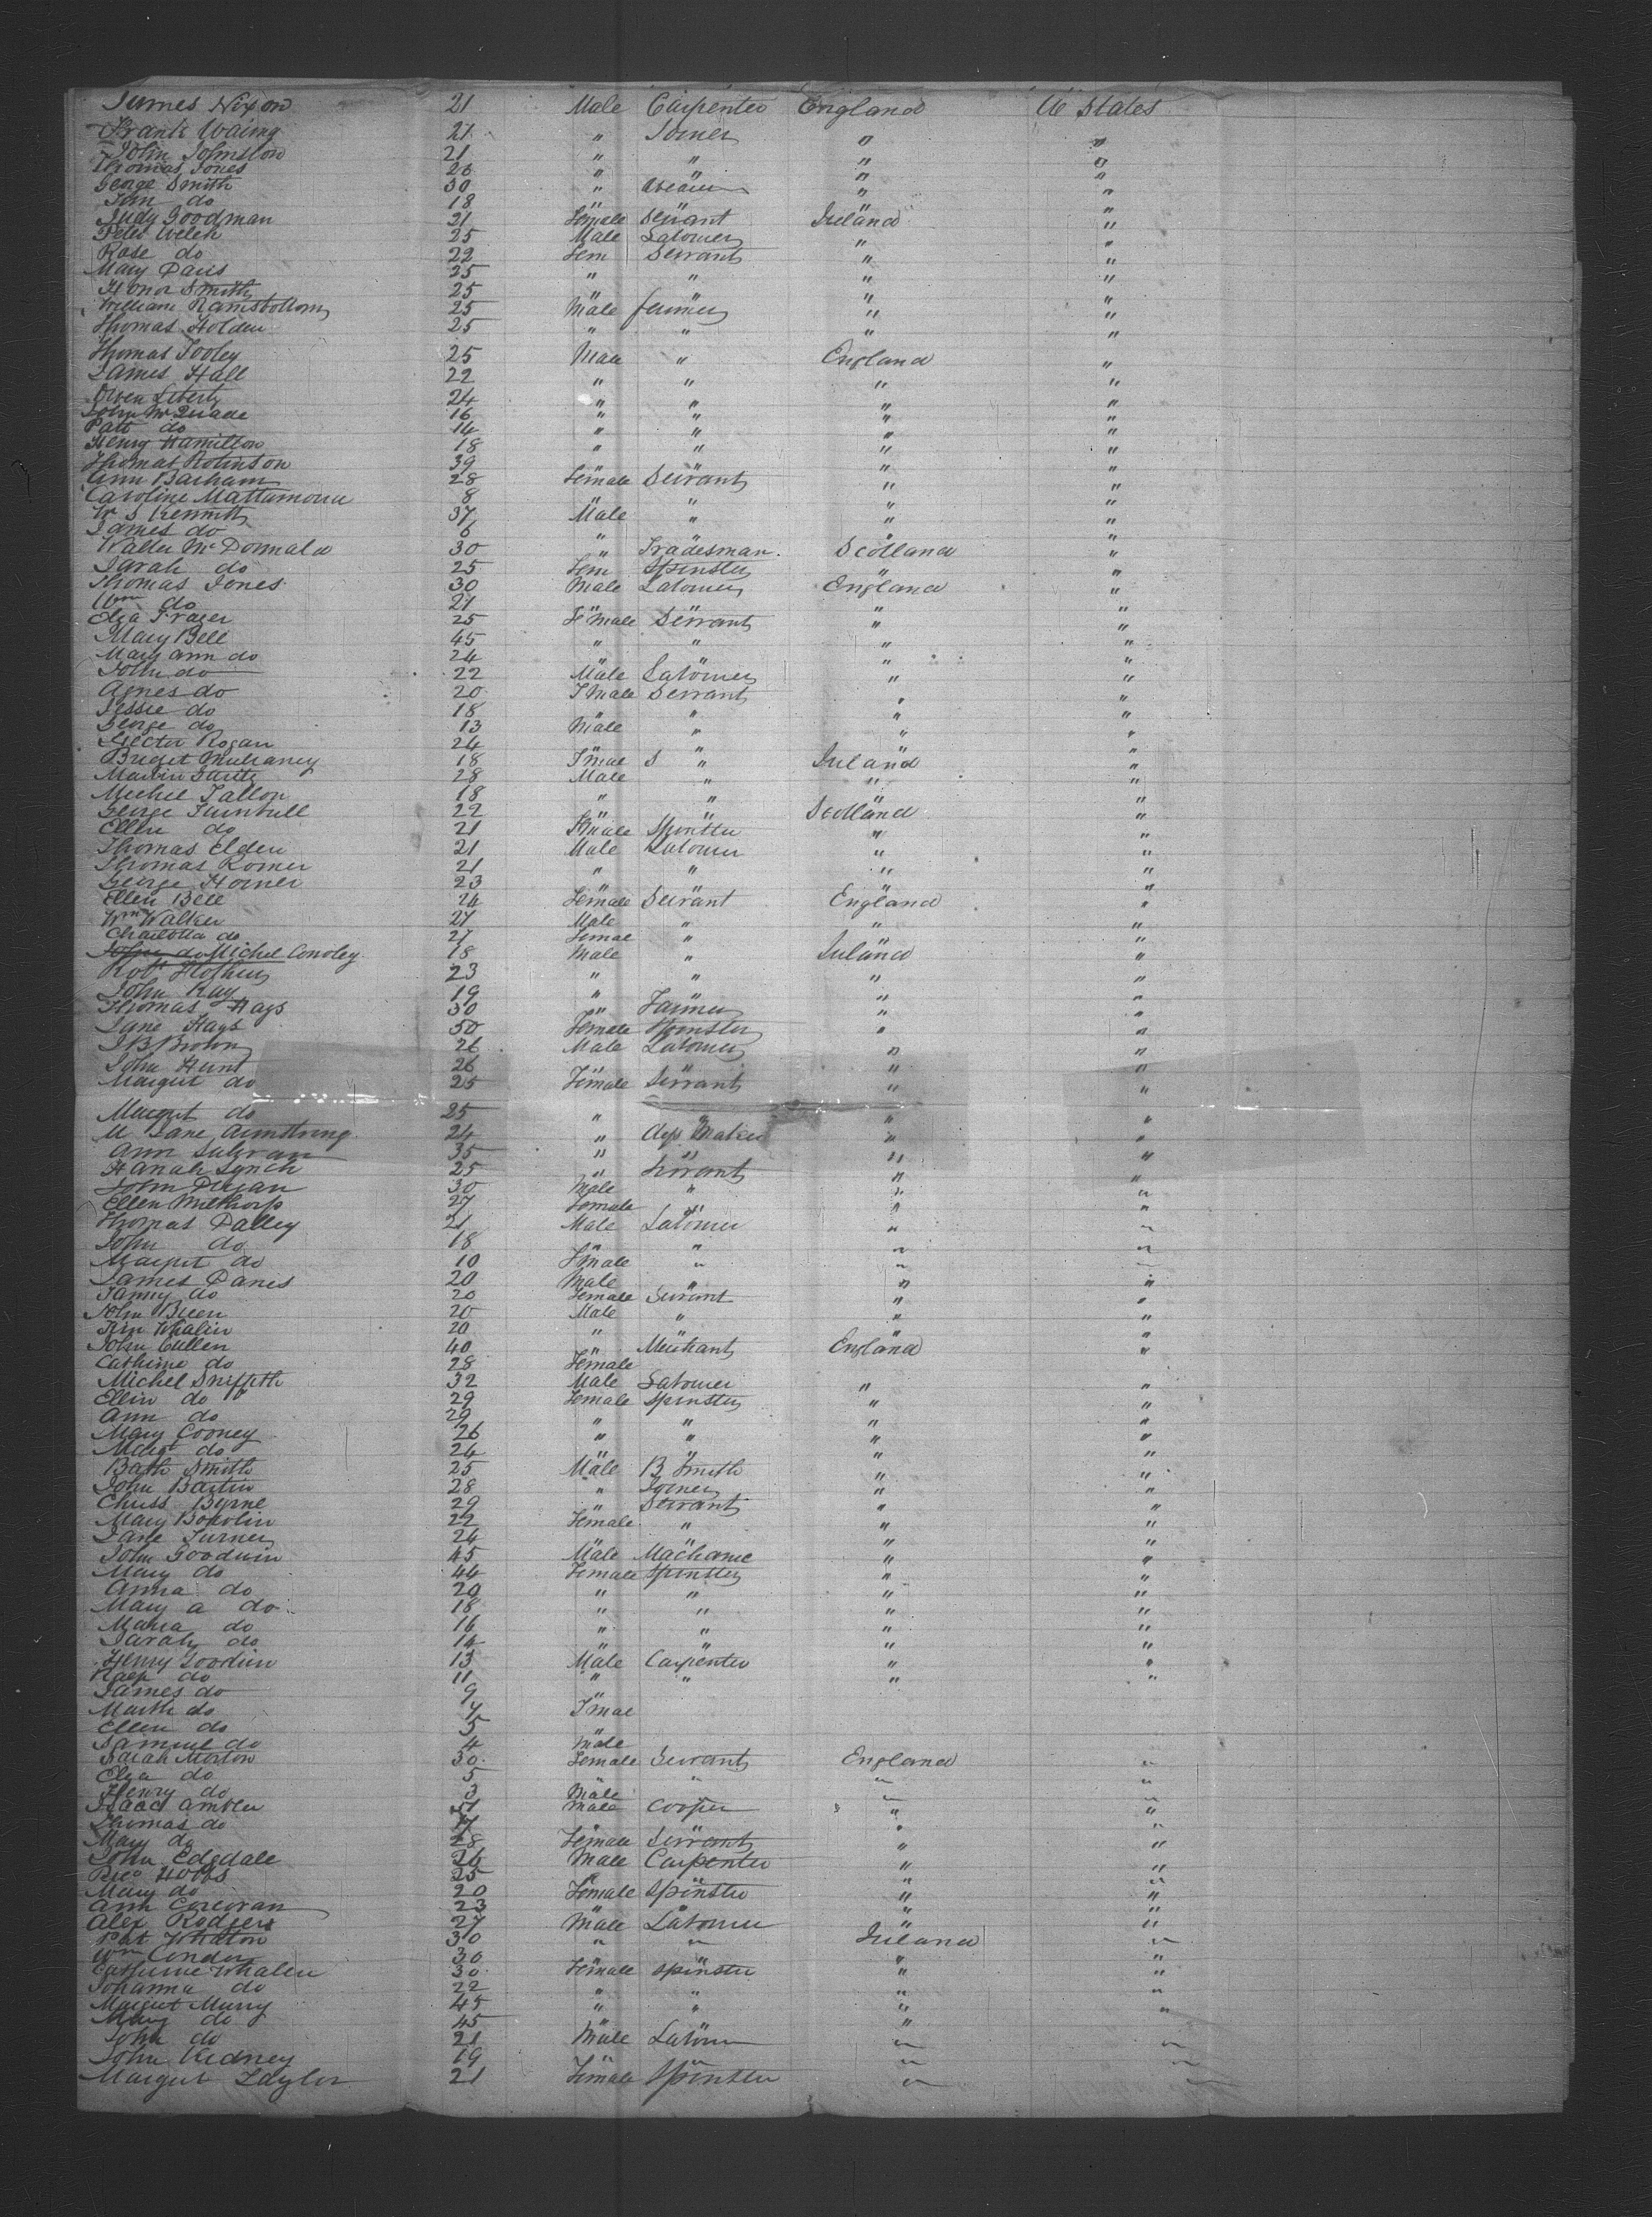 James Nixon 21 Male Carpenter England U States
Frank Waring 21 " Joiner " "
John Johnston 21 " " " "
Thomas Jones 26 " " " "
George Smith 30 " " "
Tom do 18 " " " "
Judy Goodman 21 Female Servant Ireland "
Peter Welch 25 Male Labourer " "
Rose do 22 Fem Servant " "
Mary Davis 25 " " " "
Honor Smith 25 " " " "
William Ramsbottom 25 Male farmer " "
Thomas Holden 25 " " " "
Thomas Tooley 25 Male " England "
James Hall 22 " " " "
Owen Liberty 24 " " " "
John McQuade 16 " " " "
Patt do 14 " " " "
Henry Hamilton 18 " " " "
Thomas Robinson 39 " "
Ann Barham 28 Female Servant " "
Caroline 8 " " " "
W S 37 Male " " "
James do 6 " " "
Walter McDonnald 30 " Tradesman. Scotland "
Sarah do 25 Fem Spinster " "
Thomas Jones 30 Male Labourer England "
Wm do 21 " " " "
Elza Frazer 25 Female Servant " "
Mary Bell 45 " " " "
Mary Ann do 24 " " " "
John do 22 Male Labourer " "
Agnes do 20 Fmale Servant " "
Jessie do 18 " " " "
George do 13 Male " " "
Hector Rogan 24 " " "
Bridget Mulraney 18 Fmal S " Ireland "
Martin 28 Male " " "
Michel Fallon 18 " " " "
George Turnbull 22 " " Scotland "
Ellen do 21 Fmale Spinster " "
Thomas Elder 21 Male Labourer " "
Thomas Romer 21 " " " "
George Horner 23 " " " "
Ellen Bell 24 Female Servant England "
Wm Walker 27 Male " " "
Charlotta do 27 Femal " " "
John do Michel Conoley 18 Male " Ireland "
Robt 23 " " " "
John Kay 19 " " " "
Thomas Hays 30 " Farmer " "
Jane Hays 50 Female Spinster " "
J B Brown 26 Male Labourer " "
John Hunt 26 " " " "
Margret do 25 Female Servant " "
Margret do 25 " " " "
M Jane Armstrong 24 " Maker " "
Ann 35 " " " "
Hanah Lynch 25 " Servant " "
John Dugan 30 Male " " "
Ellen 27 Female " " "
Thomas Dalley 21 Male Labourer " "
John do 18 " " " "
Margret do 10 Fmale " " "
James Davis 20 Male " " "
Fanny do 20 Female Servant " "
John Breen 20 Male " " "
Kin Whalin 20 " " " "
John Cullen 40 " Merchant England "
Cathrine do 28 Female
Michel Griffith 32 Male Labourer " "
Ellin do 29 Female Spinster " "
Ann do 29 " " " "
Mary Cooney 26 " " " "
Margt do 24 " " " "
Bath Smith 25 Male B Smith " "
John Bartin 28 " Joener " "
Chriss Byrne 29 " Servant " "
Mary 22 Female " " "
Jane Turner 24 " " " "
John Goodwin 45 Male Machanic " "
Mary do 44 Female Spinster " "
Anna do 20 " " " "
Mary a do 18 " " " "
Maria do 16 " " " "
Sarah do 14 " " " "
Henry Goodwin 13 Male Carpenter " "
Ralp do 11 " " " "
James do 9 "
Marth do 7 Fmal
Ellen do 5 "
Samuel do 4 Male
Sarah Morton 30 Female Servant England "
Elza do 5 " " " "
Henry do 3 Male " "
Isaac Ambler 51 Male Cooper " "
Thomas do " " "
Mary do 28 Female Servant " "
John Edgdale 26 Male Carpenter " "
Hobbs 25 " " " "
Mary do 20 Female Spinster " "
Ann Corcoran 23 " " " "
Alex Rodgers 27 Male Labourer " "
Pat Whalon 30 " " Ireland "
Wm Conder 30 " " " "
Catherine Whalen 30 Female Spinster " "
Johanna do 22 " " " "
Margret Murry 45 " " " "
Mary do 45 " " "
John do 21 Male Labour " "
John Kidney 19 " " " "
Margret Taylor 21 Female Spinster " "